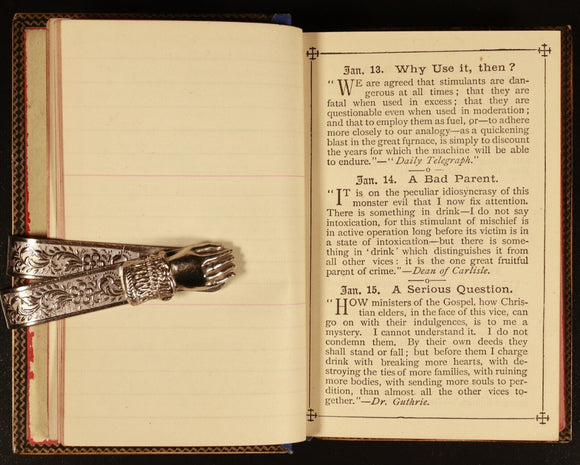 Jan. 13. Why Use it, then?
"WE are agreed that stimulants are dan-
gerous at all times; that they are
fatal when used in excess; that they are
questionable even when used in moderation;
and that to employ them as fuel, or—to adhere
more closely to our analogy—as a quickening
blast in the great furnace, is simply to discount
the years for which the machine will be able
to endure."—"Daily Telegraph."
Jan. 14. A Bad Parent.
"IT is on the peculiar idiosyncrasy of this
monster evil that I now fix attention.
There is something in drink—I do not say
intoxication, for this stimulant of mischief is
in active operation long before its victim is in
a state of intoxication—but there is some-
thing in 'drink' which distinguishes it from
all other vices: it is the one great fruitful
parent of crime."—Dean of Carlisle.
Jan. 15. A Serious Question.
"HOW ministers of the Gospel, how Chris-
tian elders, in the face of this vice, can
go on with their indulgences, is to me a
mystery. I cannot understand it. I do not
condemn them. By their own deeds they
shall stand or fall; but before them I charge
drink with breaking more hearts, with de-
stroying the ties of more families, with ruining
more bodies, with sending more souls to per-
dition, than almost all the other vices to-
gether."—Dr. Guthrie.